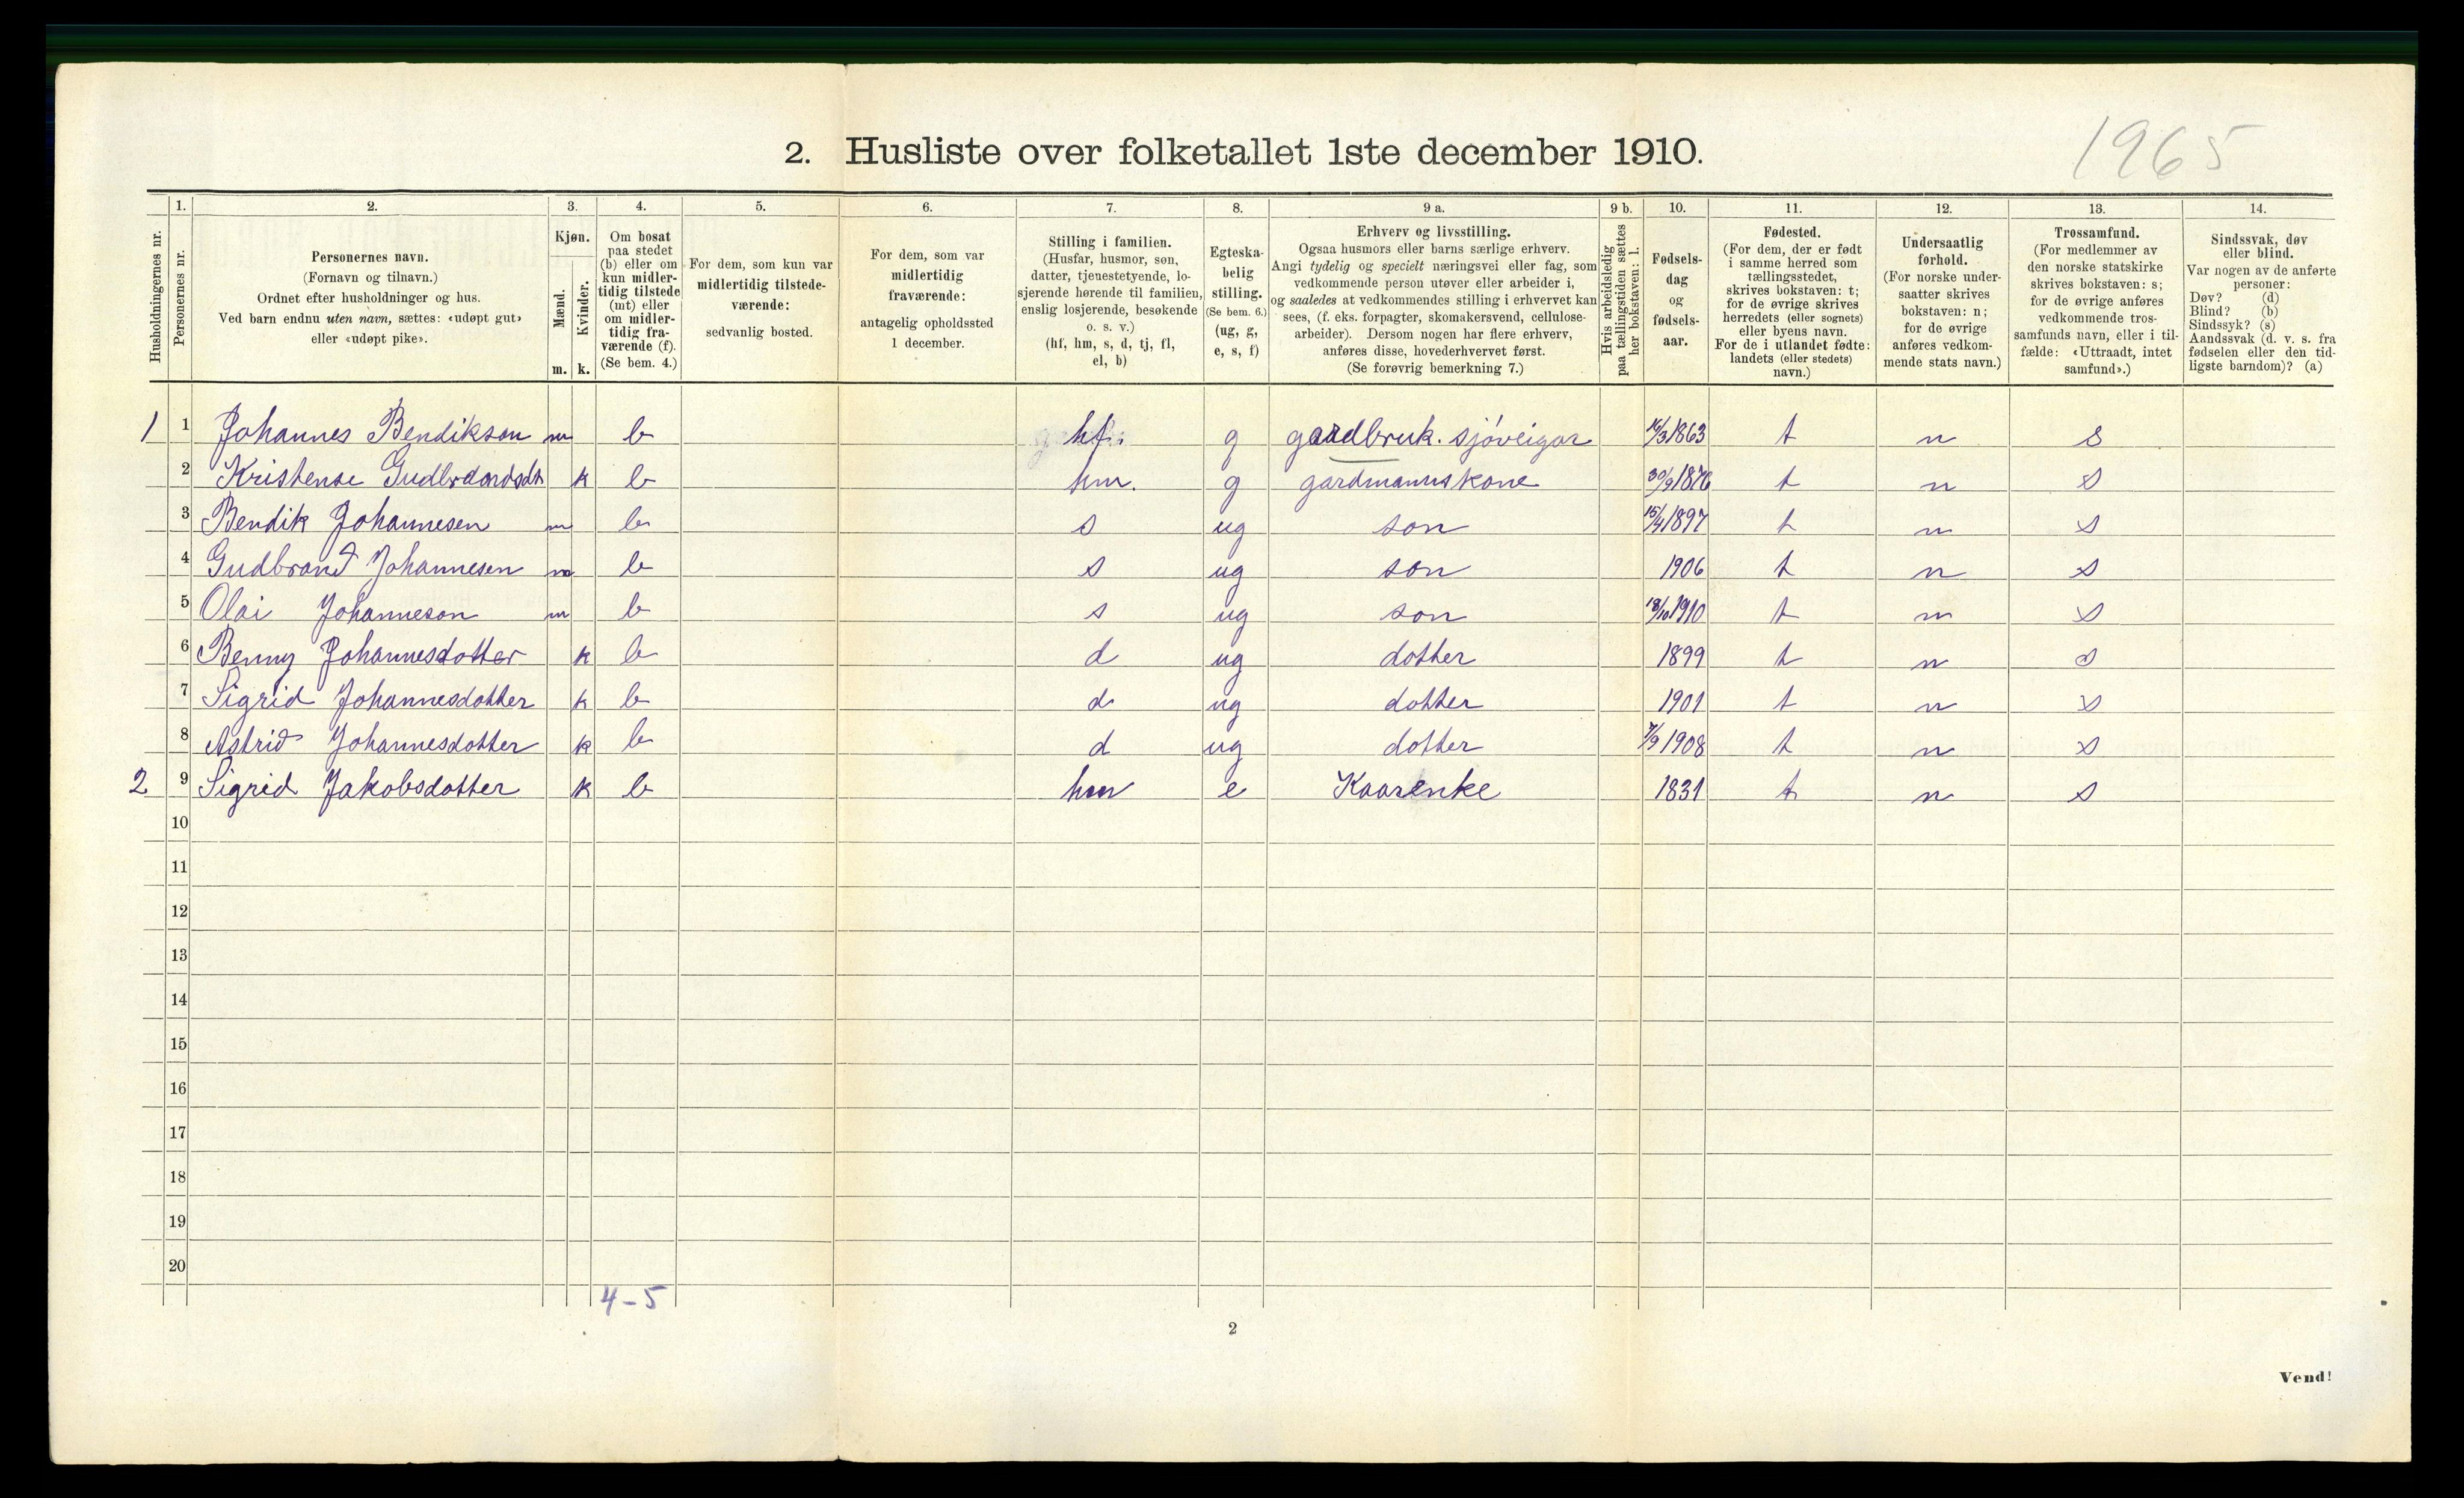 1965
2. Husliste over folketallet 1ste december 1910.
Husholdningernes nr.
1.
Personernes nr.
2.
Personernes navn.
(Fornavn og tilnavn.)
Ordnet efter husholdninger og hus.
Ved barn endnu uten navn, sættes: «udøpt gut»
eller «udøpt pike».
3.
Kjøn.
Mænd.
Kvinder.
m. k.
4.
Om bosat
paa stedet
(b) eller om
kun midler-
tidig tilstede
(mt) eller
om midler-
tidig fra-
værende (f).
(Se bem. 4.)
5.
For dem, som kun var
midlertidig tilstede-
værende:
sedvanlig bosted.
6.
For dem, som var
midlertidig
fraværende:
antagelig opholdssted
1 december.
7.
Stilling i familien.
(Husfar, husmor, søn,
datter, tjenestetyende, lo-
sjerende hørende til familien,
enslig losjerende, besøkende
o. s. v.)
(hf, hm, s, d, tj, fl,
el, b)
8.
Egteska-
belig
stilling.
(Se bem. 6.)
(ug, g,
e, s, f)
9 a.
Erhverv og livsstilling.
Ogsaa husmors eller barns særlige erhverv.
Angi tydelig og specielt næringsvei eller fag, som
vedkommende person utøver eller arbeider i,
og saaledes at vedkommendes stilling i erhvervet kan
sees, (f. eks. forpagter, skomakersvend, cellulose-
arbeider). Dersom nogen har flere erhverv,
anføres disse, hovederhvervet først.
(Se forøvrig bemerkning 7.)
9 b.
Hvis arbeidsledig
paa tællingstiden sættes
her bokstaven: l.
10.
Fødsels-
dag
og
fødsels-
aar.
11.
Fødested.
(For dem, der er født
i samme herred som
tællingsstedet,
skrives bokstaven: t;
for de øvrige skrives
herredets (eller sognets)
eller byens navn.
For de i utlandet fødte:
landets (eller stedets)
navn.)
12.
Undersaatlig
forhold.
(For norske under-
saatter skrives
bokstaven: n;
for de øvrige
anføres vedkom-
mende stats navn.)
13.
Trossamfund.
(For medlemmer av
den norske statskirke
skrives bokstaven: s;
for de øvrige anføres
vedkommende tros-
samfunds navn, eller i til-
fælde: «Uttraadt, intet
samfund».)
14.
Sindssvak, døv
eller blind.
Var nogen av de anførte
personer:
Døv? (d)
Blind? (b)
Sindssyk? (s)
Aandssvak (d. v. s. fra
fødselen eller den tid-
ligste barndom)? (a)
1 1 Johannes Bendikson m b hf. g gardbruk. sjöveigar 1863 t n s
2 Kristense k b hm. g gardmannskone 30/9 1876 t n s
3 Bendik Johannesen m b s ug son 15/4 1897 t n s
4 Gudbrand Johannesen m b s ug son 1906 t n s
5 Olai Johanneson m b s ug son 18/10 1910 t n s
6 Benny Johannesdotter k b d ug dotter 1899 t n s
7 Sigrid Johannesdotter k b d ug dotter 1901 t n s
8 Astrid Johannesdotter k b d ug dotter 7/9 1908 t n s
2 9 Sigrid Jakobsdotter k b hm e Kaarenke 1831 t n s
10
11
12
13
14
15
16
17
18
19
20
4-5
2
Vend!